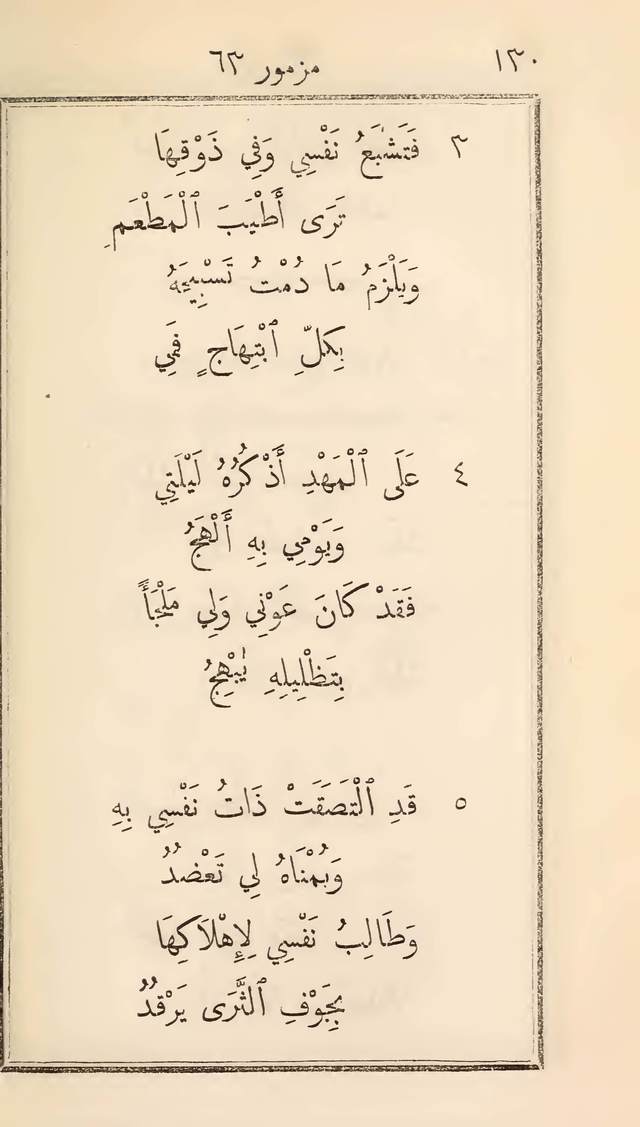 ١٣٠ مزمور ٦٣
٣ فَتَشْبَعُ نَفْسِي وَفِي ذَوْقِهَا
تَرَى أَطْيَبَ ٱلْمَطْعَمِ
وَيَلْزَمُ مَا دُمْتُ تَسْبِيحَهُ
بِكلِّ ٱبْتِهَاجٍ فَمِي
٤ عَلَى ٱلْمَهْدِ أَذْكُرُهُ لَيْلَتِي
وَيَوْمِي بِهِ أَلْهَجُ
فَقَدْ كَانَ عَوْنِي وَلِي مَلْجَأً
بِتَظْلِيلِهِ يُبْهِجُ
٥ قَدِ ٱلْتَصَقَتْ ذَاتُ نَفْسِي بِهِ
وَيُمْنَاهُ لِي تَعْضُدُ
وَطَالِبُ نَفْسِي لِإِهْلَاكِهَا
بِجَوْفِ ٱلثَّرَى يَرْقُدُ